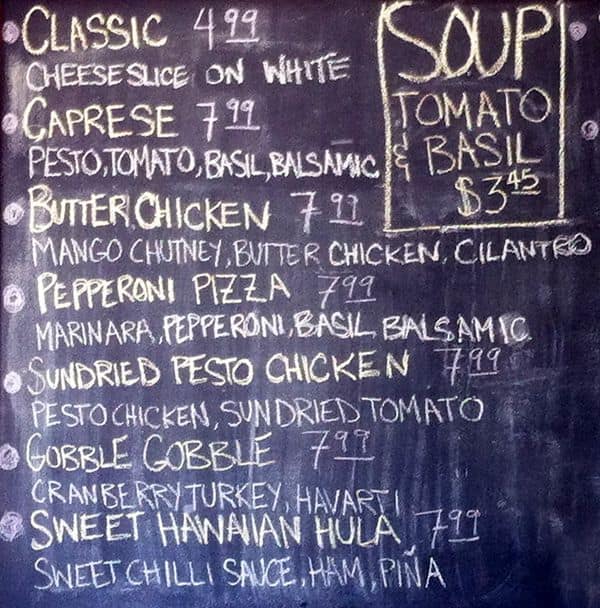 CLASSIC 4.99
CHEESE SLICE ON WHITE
CAPRESE 7.99
PESTO, TOMATO, BASIL, BALSAMIC
BUTTER CHICKEN 7.99
MANGO CHUTNEY, BUTTER CHICKEN, CILANTRO
PEPPERONI PIZZA 7.99
MARINARA, PEPPERONI, BASIL BALSAMIC
SUNDRIED PESTO CHICKEN 7.99
PESTO CHICKEN, SUNDRIED TOMATO
GOBBLE GOBBLE 7.99
CRANBERRY TURKEY, HAVARTI
SWEET HAWAIIAN HULA 7.99
SWEET CHILLI SAUCE, HAM, PIÑA
SOUP
TOMATO
& BASIL
$3.45